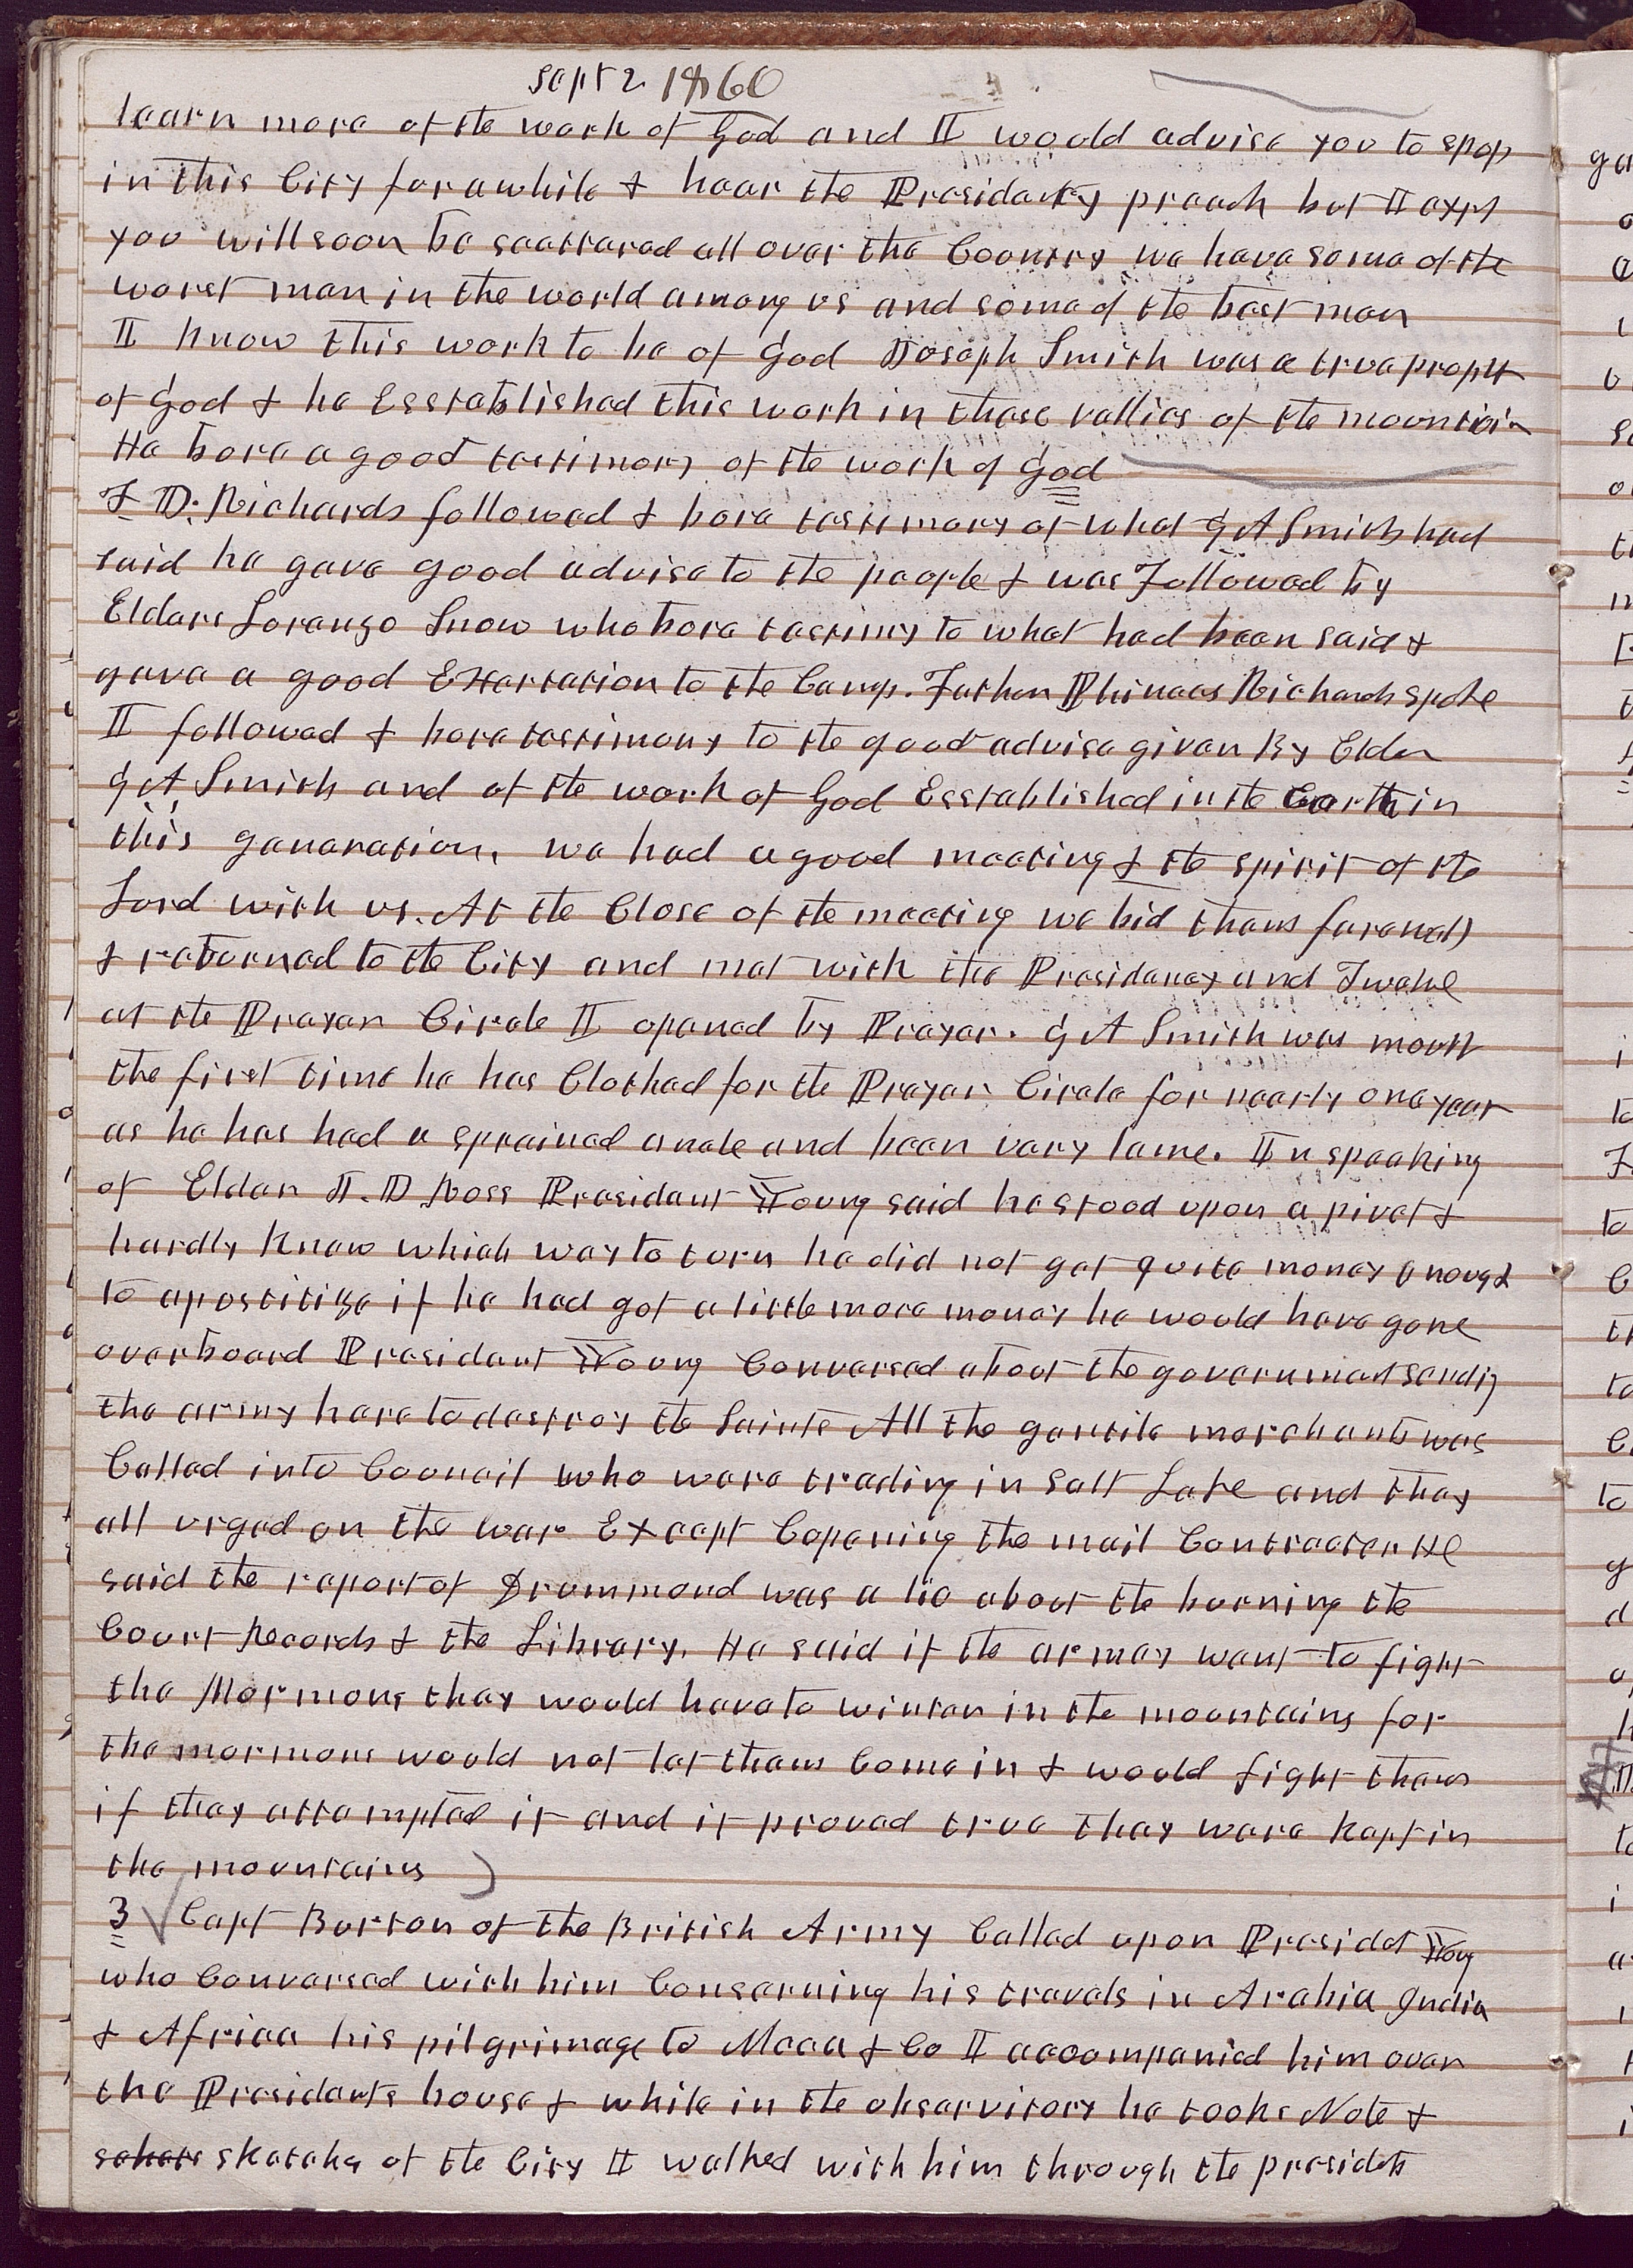 Sept 2 1860
learn more of the work of God and I would advise you to stop
in this City for awhile & hear the Presidency preach but I expt
you will soon be scattered all over the Country we have some of the
worst men in the world among us and some of the best men
I know this work to be of God Joseph Smith was a true prophet
of God & he Esstablished this work in these vallies of the mountain
He bore a good testimony of the work of God
F D. Richards followed & bore testimony of what G A Smith had
said he gave good advise to the people & was Followed by
Elders Lorenzo Snow who bore testimny to what had been said &
gave a good Exhortation to the Camp. Father Phineas Richards spoke
I followed & bore testimony to the good advise given By Elder
G A Smith and of the work of God Esstablished in the Earth in
this generation. we had a good meeting & the spirit of the
Lord with us. At the Close of the meeting we bid them farewell
& returned to the City and met with the Presidency and Twelve
at the Prayer Circle I opened by Prayer. G A Smith was mouth
the first time he has Clothed for the Prayer Circle for nearly one year
as he has had a sprained ancle and been very lame. In speaking
of Elder J. D Ross President Young said he stood upon a pivet &
hardly Knew which way to turn he did not get quite money enough
to apostitize if he had got a little more money he would have gone
overboard President Young Conversed about the government sending
the army here to destroy the Saints All the gentile merchants was
Called into Council who were trading in Salt Lake and they
all urged on the war Except Copening the mail Contracter He
said the report of Drummond was a lie about the burning the
Court Records & the Library. He said if the armey want to fight
the Mormons they would have to winter in the mountains for
the mormons would not let them Come in & would fight them
if they attempted it and it proved true they were kept in
the mountains )
3 √ Capt Burton of the British Army Called upon Presidet Young
who Conversed with him Conserning his travels in Arabia India
& Africa his pilgrimage to Mecca & Co I accompanied him over
the Presidents house & while in the observitory he tooke Note &
skatahs of the City I walked with him through the presidets